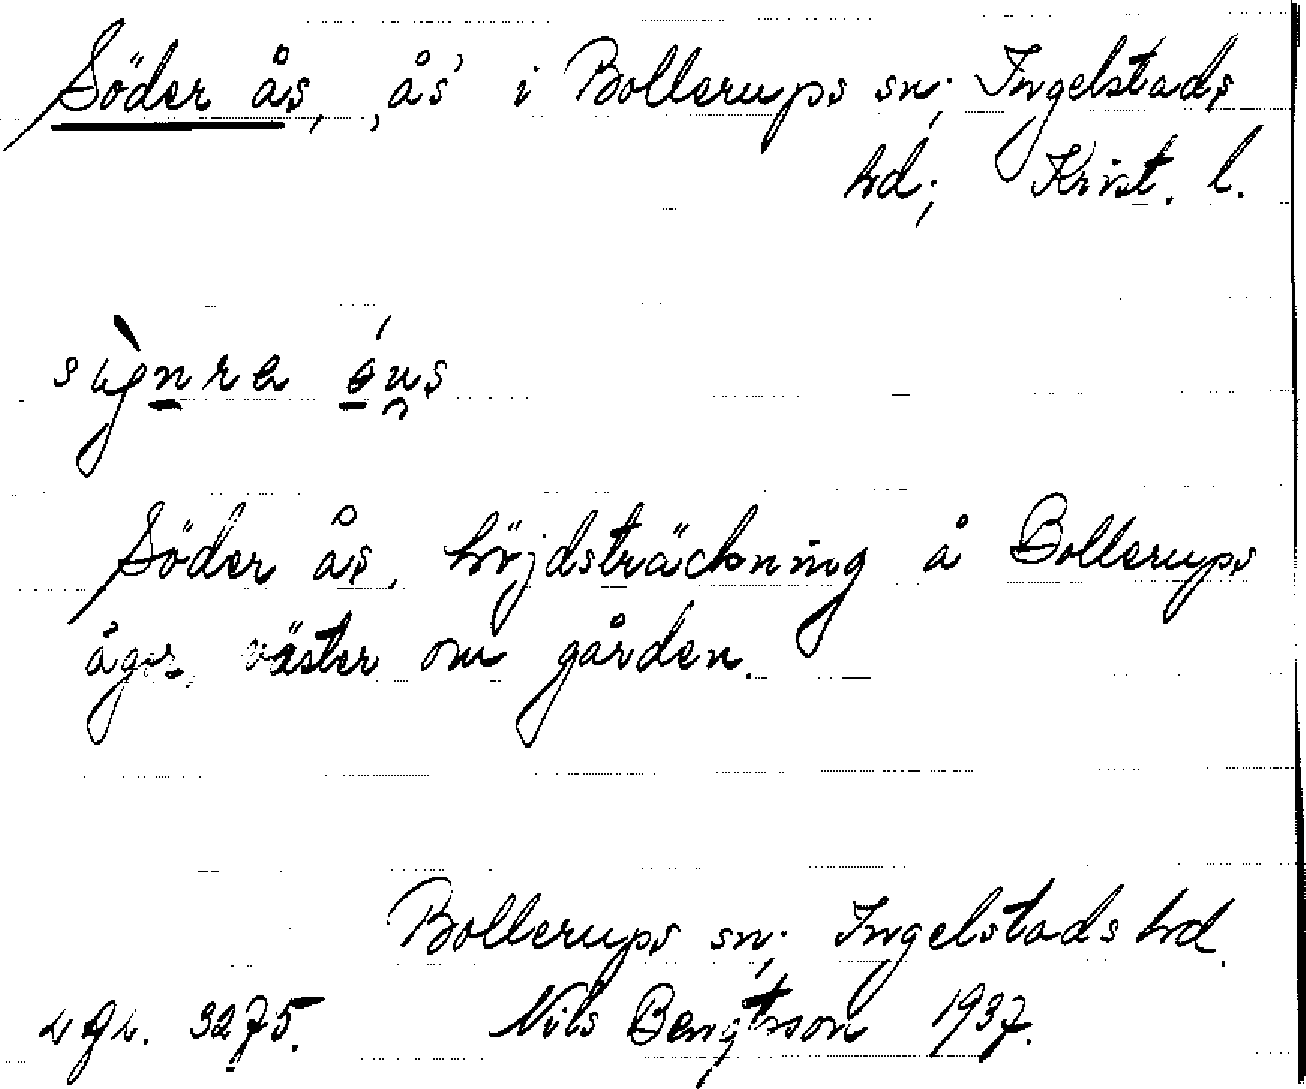 Söder ås, ‚ås’ i Bollerups sn; Ingelstads
hd; Krist. l.
Söder ås, höjdsträckning å Bollerups
ägor, väster om gården.
Bollerups sn; Ingelstads hd.
3275. Nils Bengtsson 1937.